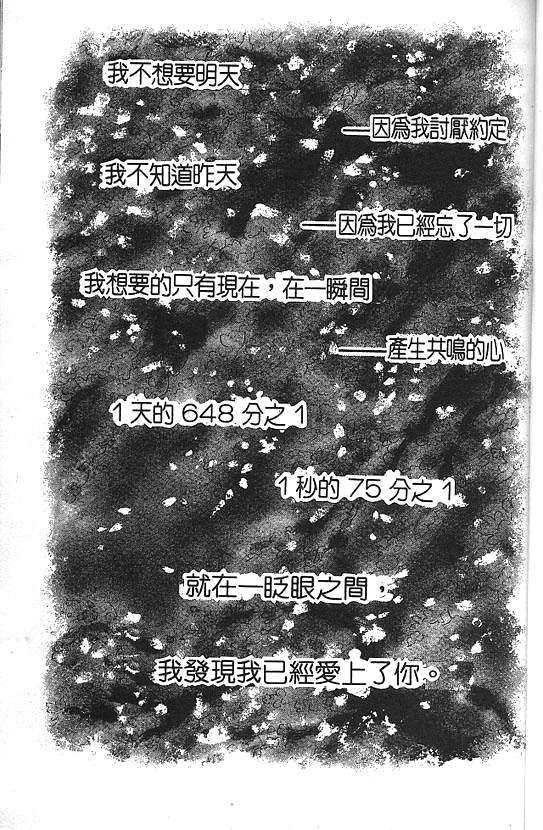 我不想要明天
──因為我討厭約定
我不知道昨天
──因為我已經忘了一切
我想要的只有現在，在一瞬間
──產生共鳴的心
1天的648分之1
1秒的75分之1
就在一眨眼之間，
我發現我已經愛上了你。